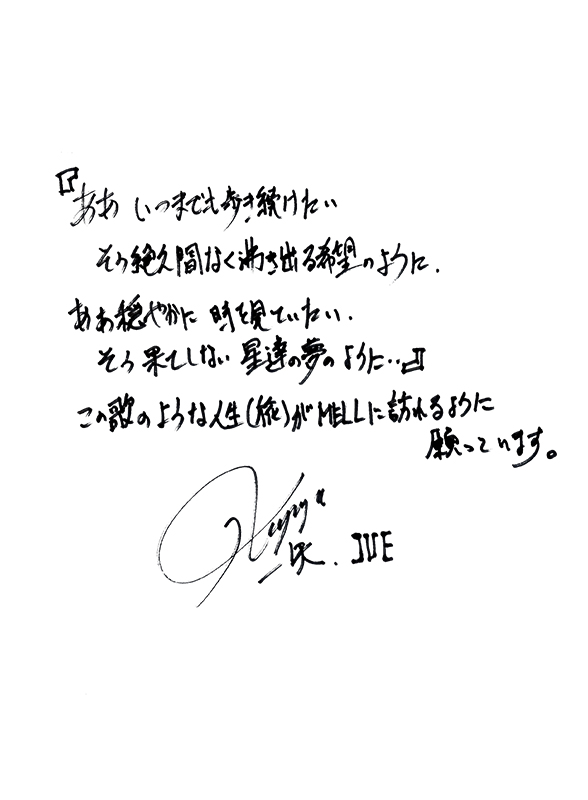 『ああ いつまでも歩き続けたい
そう絶え間なく沸き出る希望のように.
ああ穏やかに 時を見ていたい.
そう果てしない 星達の夢のように‥』
この歌のような人生(旅)がMELLに訪れるように
願っています。
I'VE